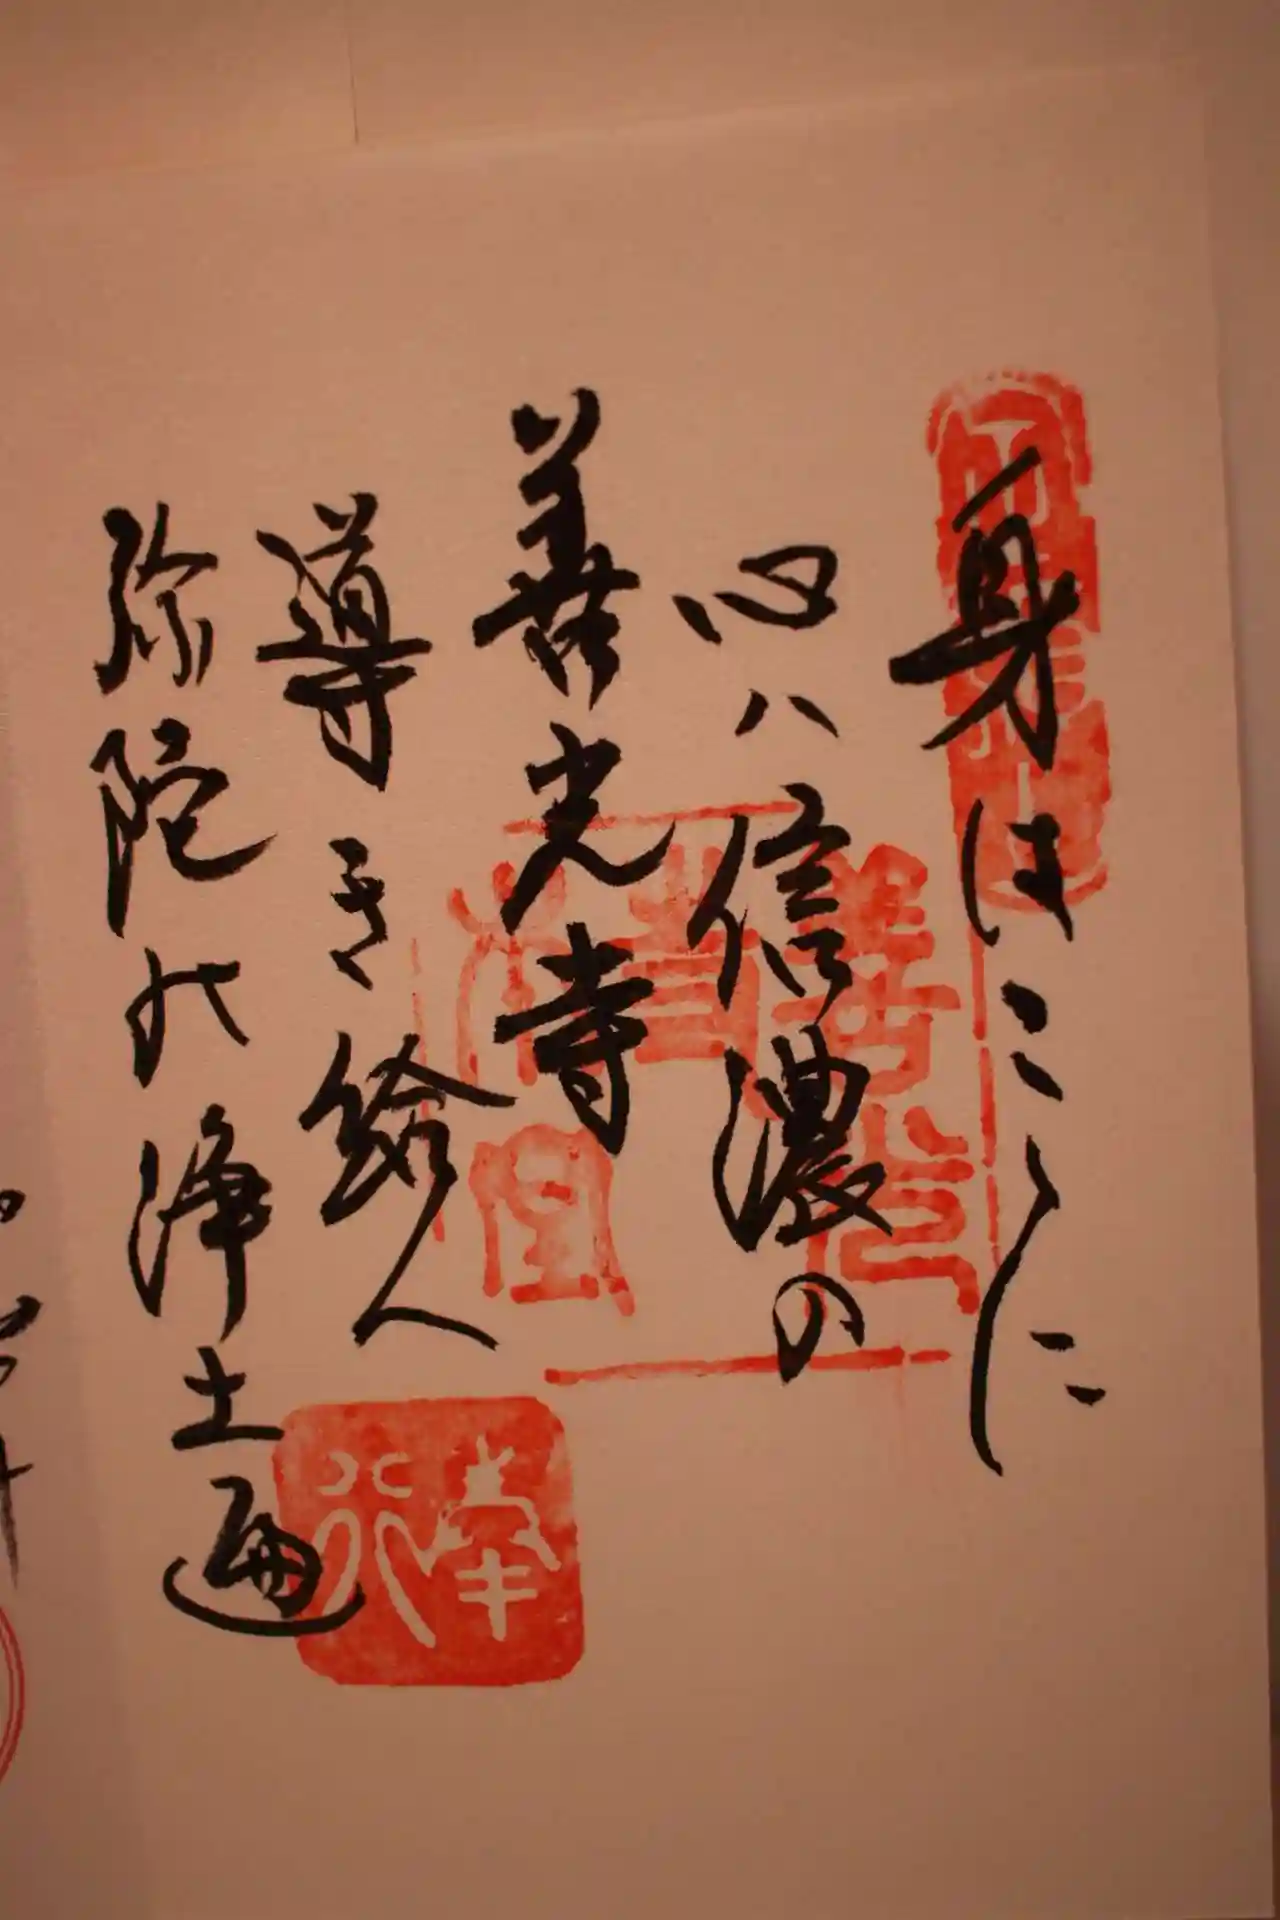 身はこゝに
心ハ信濃の
善光寺
導き給へ
弥陀の浄土遍
奉拝